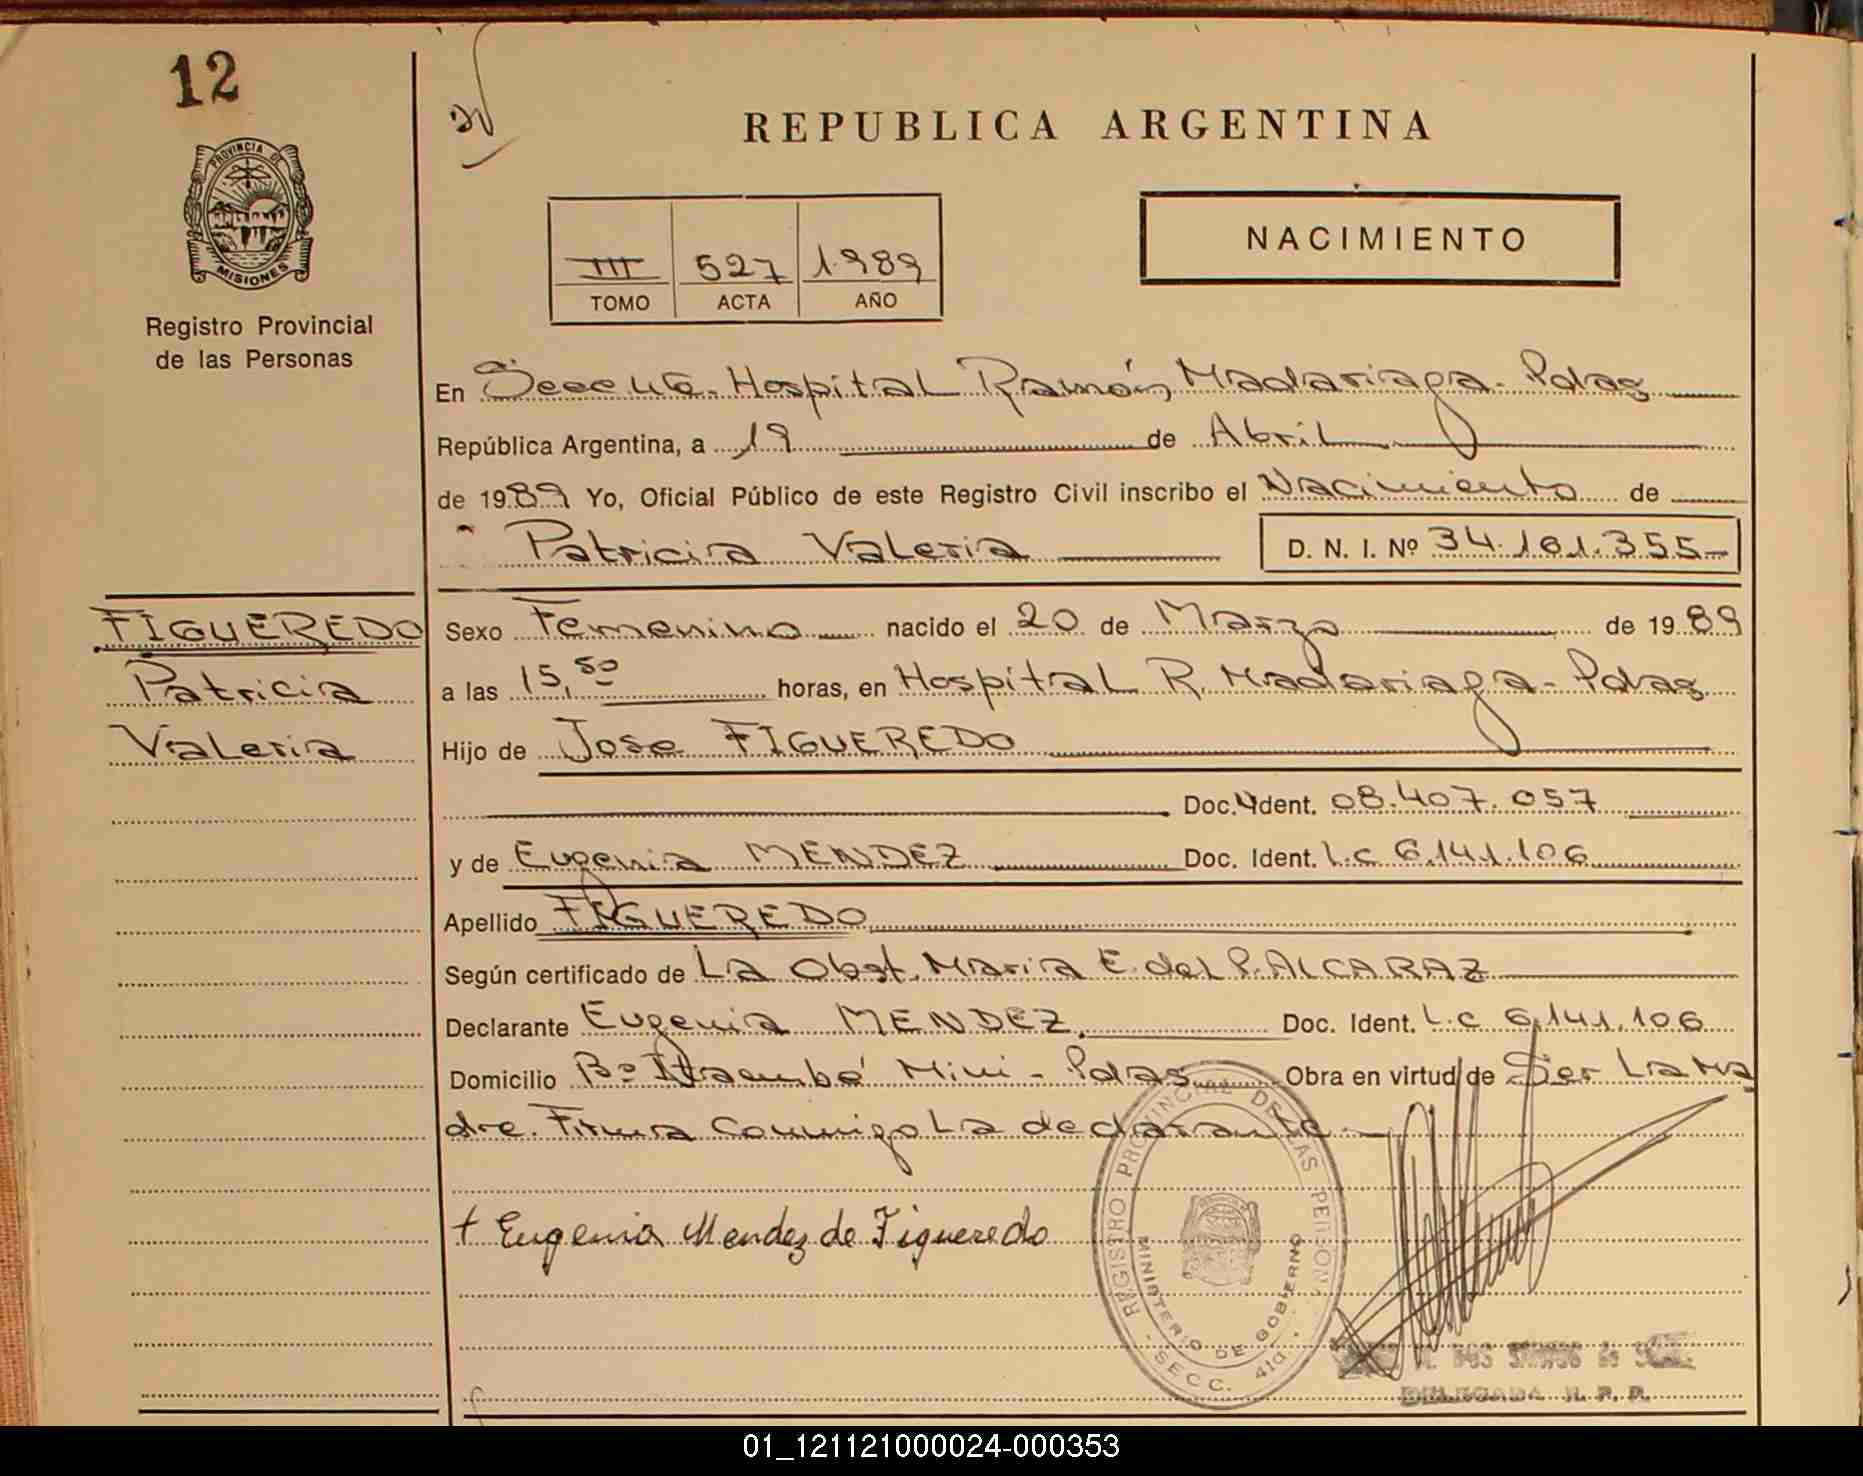 12
PROVINCIA DE
MISIONES
Registro Provincial
de las Personas
REPUBLICA ARGENTINA
III 527 1.989
TOMO ACTA AÑO
NACIMIENTO
En Secc 4ta. Hospital Ramón Madariaga - Pdas
República Argentina, a 19 de Abril
de 1989 Yo, Oficial Público de este Registro Civil inscribo el Nacimiento de
Patricia Valeria D. N. I. Nº 34.161.355-
FIGUEREDO
Patricia
Valeria
Sexo Femenino nacido el 20 de Marzo de 1989
a las 15,50 horas, en Hospital R. Madariaga - Pdas
Hijo de Jose FIGUEREDO
Doc. Ident. 08.407.057
y de Eugenia MENDEZ Doc. Ident. L.C 6.141.106
Apellido FIGUEREDO
Según certificado de La Obst. Maria E. del P. ALCARAZ
Declarante Eugenia MENDEZ. Doc. Ident. L.C 6.141.106
Domicilio Bº Itaembé Mini - Pdas Obra en virtud de Ser La Ma
dre. Firma Conmigo La declarante -
Eugenia Mendez de Figueredo
REGISTRO PROVINCIAL DE LAS PERSONAS
MINISTERIO DE GOBIERNO
- SECC. 4ta. -
DOS SANTOS de
DELEGADA R. P. P.
01_121121000024-000353